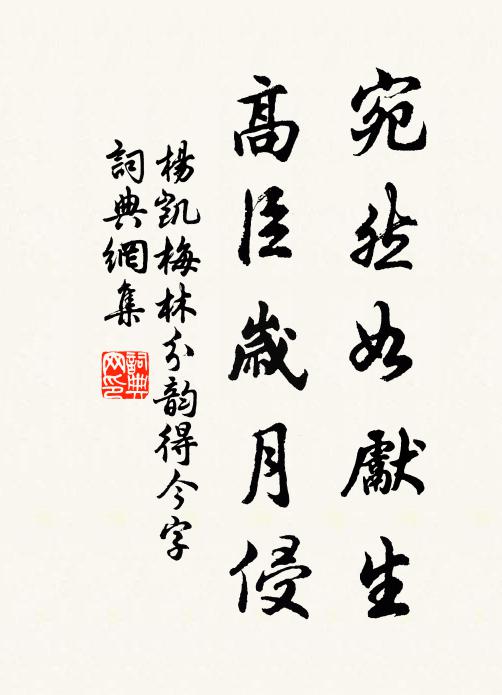 宛然如獻生
高臣歲月侵
楊凱梅林分韵得今字
詞典網集
詞典网印